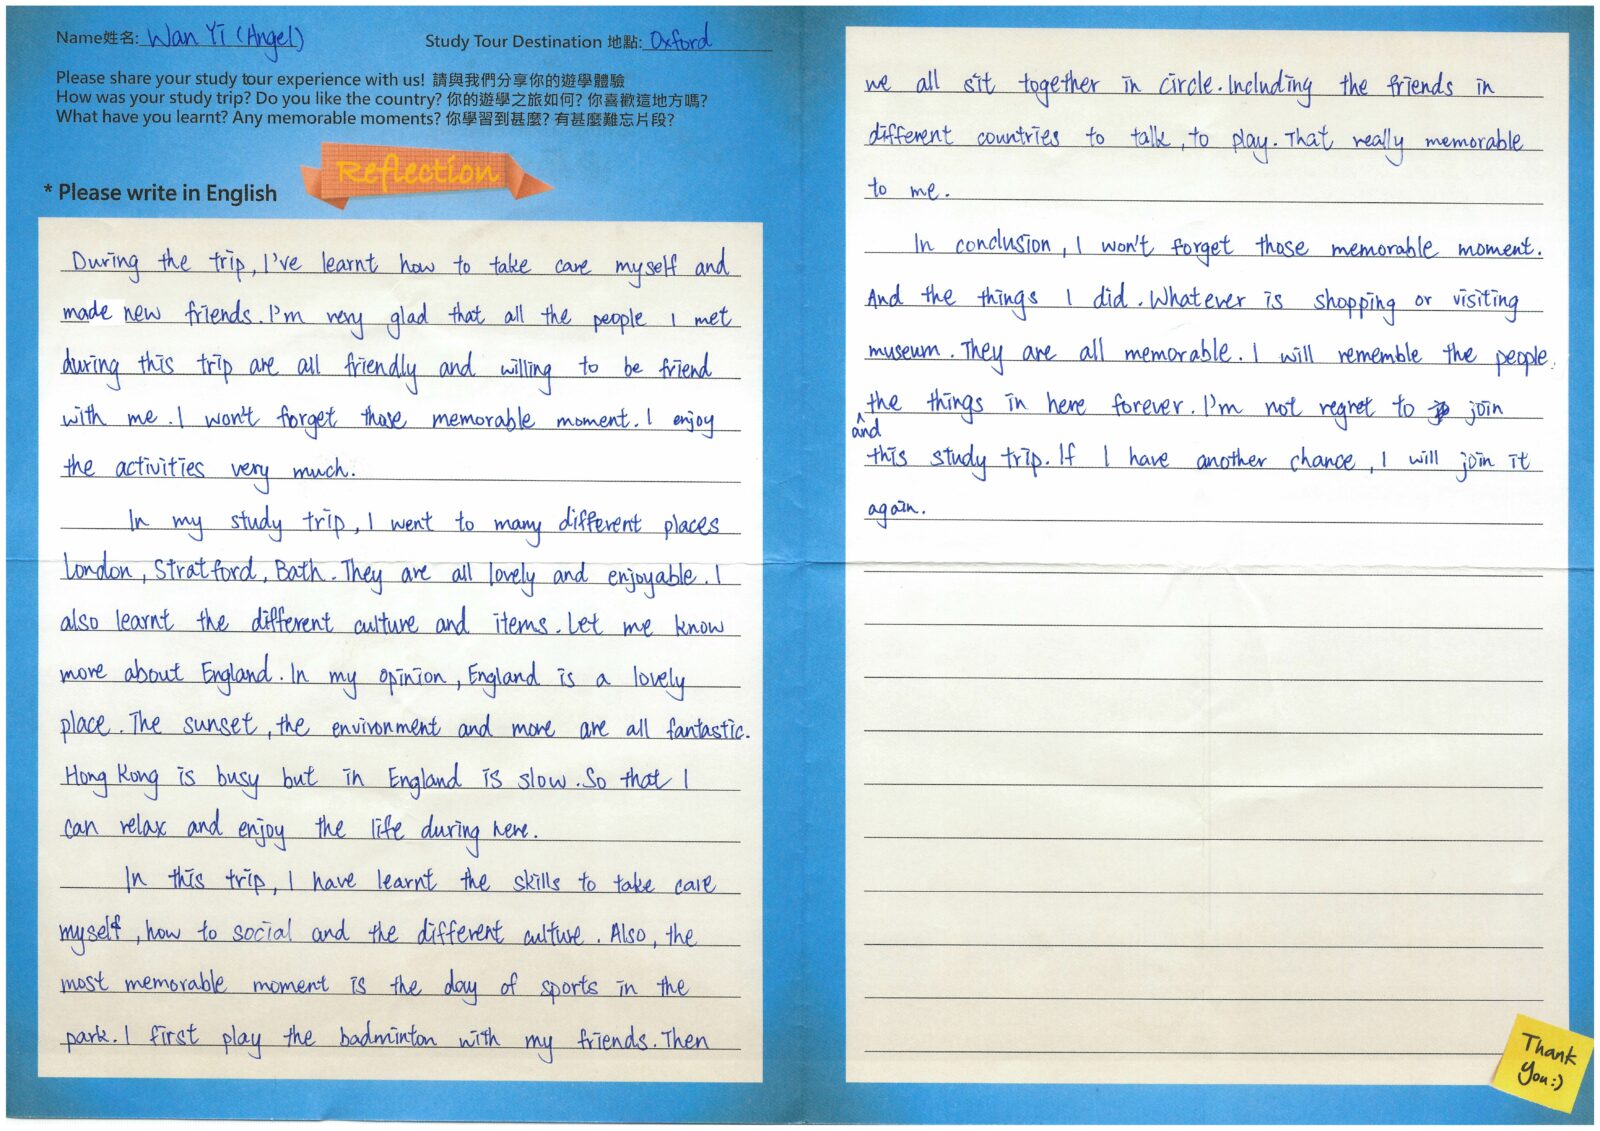 Name姓名: Wan Yi (Angel)
Study Tour Destination 地點: Oxford
Please share your study tour experience with us! 請與我們分享你的遊學體驗
How was your study trip? Do you like the country? 你的遊學之旅如何? 你喜歡這地方嗎?
What have you learnt? Any memorable moments? 你學習到甚麼? 有甚麼難忘片段?
Reflection
* Please write in English
During the trip, I've learnt how to take care myself and
made new friends. I'm very glad that all the people I met
during this trip are all friendly and willing to be friend
with me. I won't forget those memorable moment. I enjoy
the activities very much.
In my study trip, I went to many different places
London, Stratford, Bath. They are all lovely and enjoyable. I
also learnt the different culture and items. Let me know
more about England. In my opinion, England is a lovely
place. The sunset, the environment and more are all fantastic.
Hong Kong is busy but in England is slow. So that I
can relax and enjoy the life during here.
In this trip, I have learnt the skills to take care
myself, how to social and the different culture. Also, the
most memorable moment is the day of sports in the
park. I first play the badminton with my friends. Then
we all sit together in circle. Including the friends in
different countries to talk, to play. That really memorable
to me.
In conclusion, I won't forget those memorable moment.
And the things I did. Whatever is shopping or visiting
museum. They are all memorable. I will remember the people
and the things in here forever. I'm not regret to join
this study trip. If I have another chance, I will join it
again.
Thank
You:)